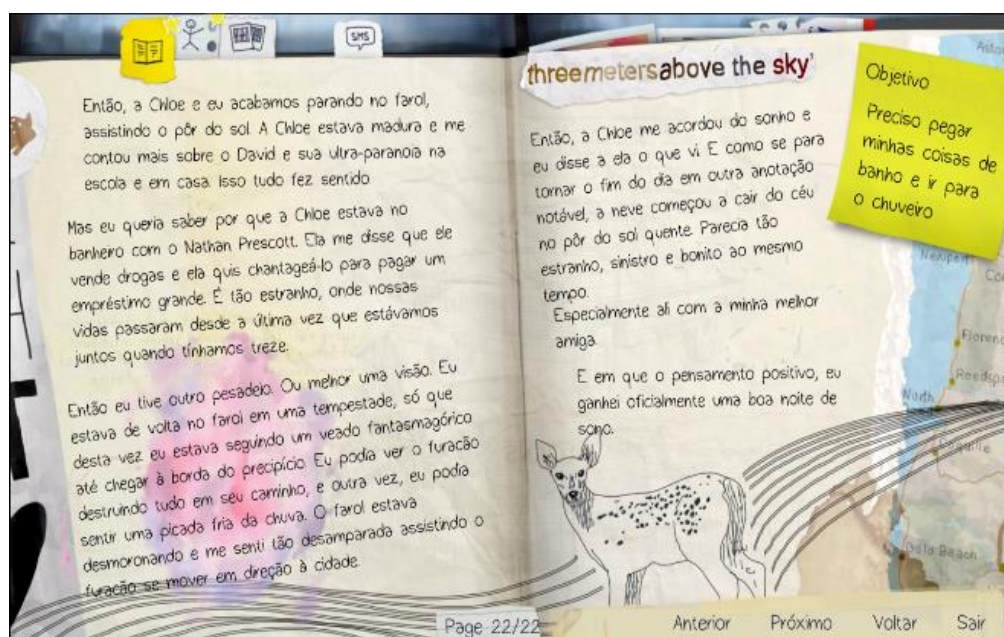 SMS
Então, a Chloe e eu acabamos parando no farol,
assistindo o pôr do sol. A Chloe estava madura e me
contou mais sobre o David e sua ultra-paranoia na
escola e em casa. Isso tudo fez sentido
Mas eu queria saber por que a Chloe estava no
banheiro com o Nathan Prescott. Ela me disse que ele
vende drogas e ela quis chantageá-lo para pagar um
empréstimo grande. É tão estranho, onde nossas
vidas passaram desde a última vez que estávamos
juntos quando tínhamos treze.
Então eu tive outro pesadelo. Ou melhor uma visão. Eu
estava de volta no farol em uma tempestade, só que
desta vez eu estava seguindo um veado fantasmagórico
até chegar à borda do precipício. Eu podia ver o furacão
destruindo tudo em seu caminho, e outra vez, eu podia
sentir uma picada fria da chuva. O farol estava
desmoronando e me senti tão desamparada assistindo o
furacão se mover em direção à cidade.
threemetersabove the sky
Então, a Chloe me acordou do sonho e
eu disse a ela o que vi. E como se para
tornar o fim do dia em outra anotação
notável, a neve começou a cair do céu
no pôr do sol quente. Parecia tão
estranho, sinistro e bonito ao mesmo
tempo.
Especialmente ali com a minha melhor
amiga.
E em que o pensamento positivo, eu
ganhei oficialmente uma boa noite de
sono.
Objetivo
Preciso pegar
minhas coisas de
banho e ir para
o chuveiro
Newport
Florenc
Reedsp
North
Coquille
Gold Beach
Page 22/22
Anterior Próximo Voltar Sair